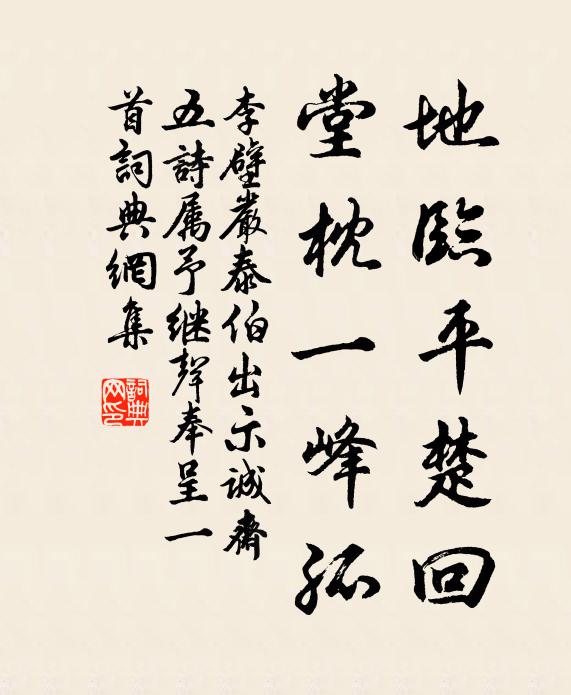 地臨平楚回
堂枕一峰孤
李壁嚴泰伯出示誠齋
五詩属予継聲奉呈一
首詞典網集
詞典网印